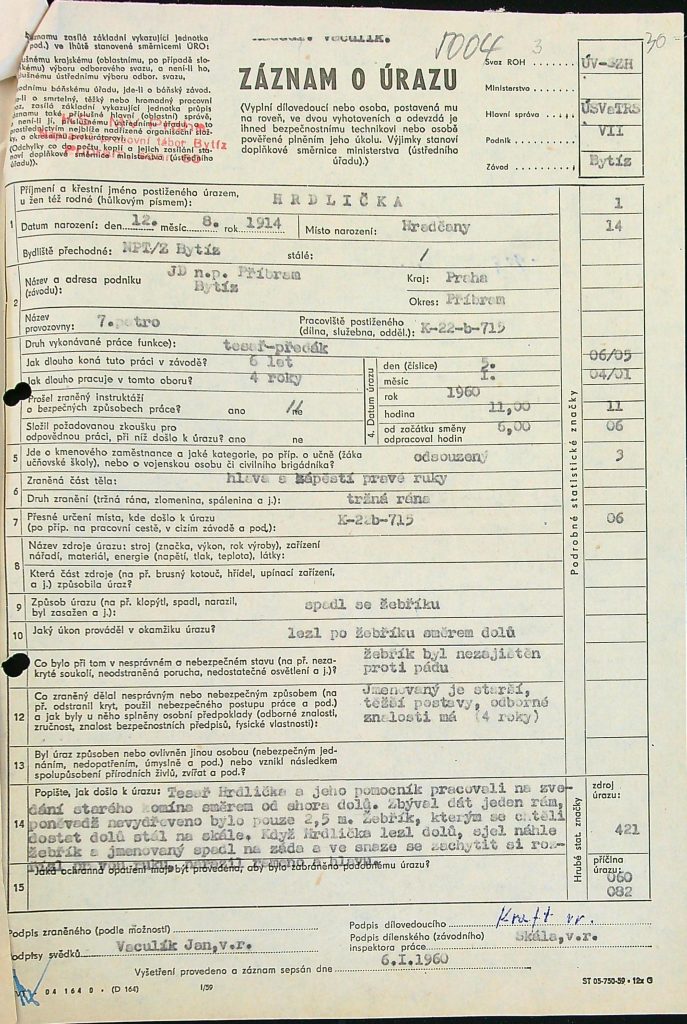 znamu zasílá základní vykazující jednotka
pod.) ve lhůtě stanovené směrnicemi ÚRO:
slušnému krajskému (oblastnímu, po případě slo-
skému) výboru odborového svazu, a není-li ho,
slušnému ústřednímu výboru odbor. svazu,
vodnímu báňskému úřadu, jde-li o báňský závod.
de-li o smrtelný, těžký nebo hromadný pracovní
raz, zasílá základní vykazující jednotka průpis
znamu také příslušné hlavní (oblastní) správě,
není-li jí, příslušnému ústřednímu úřadu,
prostřednictvím nejblíže nadřízené organisační slož-
ky, a okresnímu prokurátorovi.
(Odchylky co do počtu kopií a jejich zasílání sta-
noví doplňkové směrnice ministerstva (ústředního
úřadu)).
tábor Bytíz
Vaculík.
5004 3
30-
ZÁZNAM O ÚRAZU
(Vyplní dílovedoucí nebo osoba, postavená mu
na roveň, ve dvou vyhotoveních a odevzdá je
ihned bezpečnostnímu technikovi nebo osobě
pověřené plněním jeho úkolu. Výjimky stanoví
doplňkové směrnice ministerstva (ústředního
úřadu).)
Svaz ROH ÚV-SZH
Ministerstvo
Hlavní správa ÚSVaTRS
Podnik VII
Závod Bytíz
Podrobné statistické značky
1 Příjmení a křestní jméno postiženého úrazem,
u žen též rodné (hůlkovým písmem): HRDLIČKA 1
Datum narození: den 12. měsíc 8. rok 1914 Místo narození: Hradčany 14
Bydliště přechodné: NPT/Z Bytíz stálé: /
2 Název a adresa podniku JD n.p. Příbram Kraj: Praha
(závodu): Bytíz Okres: Příbram
Název
provozovny: 7.patro Pracoviště postiženého
(dílna, služebna, odděl.): K-22-b-715
Druh vykonávané práce funkce): tesař-předák
Jak dlouho koná tuto práci v závodě? 6 let
Jak dlouho pracuje v tomto oboru? 4 roky
Prošel zraněný instruktáží
o bezpečných způsobech práce? ano ne
Složil požadovanou zkoušku pro
odpovědnou práci, při níž došlo k úrazu? ano ne
4. Datum úrazu
den (číslice) 5. 06/05
měsíc I. 04/01
rok 1960
hodina 11,00 11
od začátku směny
odpracoval hodin 6,00 06
5 Jde o kmenového zaměstnance a jaké kategorie, po příp. o učně (žáka
učňovské školy), nebo o vojenskou osobu či civilního brigádníka? odsouzený 3
6 Zraněná část těla: hlava a zápěstí pravé ruky
Druh zranění (tržná rána, zlomenina, spálenina a j.): tržná rána
7 Přesné určení místa, kde došlo k úrazu
(po příp. na pracovní cestě, v cizím závodě a pod.): K-22b-715 06
8 Název zdroje úrazu: stroj (značka, výkon, rok výroby), zařízení
nářadí, materiál, energie (napětí, tlak, teplota), látky:
Která část zdroje (na př. brusný kotouč, hřídel, upínací zařízení,
a j.) způsobila úraz?
9 Způsob úrazu (na př. klopýtl, spadl, narazil,
byl zasažen a j.): spadl se žebříku
10 Jaký úkon prováděl v okamžiku úrazu? lezl po žebříku směrem dolů
Co bylo při tom v nesprávném a nebezpečném stavu (na př. neza-
kryté soukolí, neodstraněná porucha, nedostatečné osvětlení a j.)? žebřík byl nezajištěn
proti pádu
12 Co zraněný dělal nesprávným nebo nebezpečným způsobem (na
př. odstranil kryt, použil nebezpečného postupu práce a pod.)
a jak byly u něho splněny osobní předpoklady (odborné znalosti,
zručnost, znalost bezpečnostních předpisů, fysické vlastnosti): Jmenovaný je starší,
těžší postavy, odborné
znalosti má (4 roky)
13 Byl úraz způsoben nebo ovlivněn jinou osobou (nebezpečným jed-
náním, nedopatřením, úmyslně a pod.) nebo vznikl následkem
spolupůsobení přírodních živlů, zvířat a pod.?
14 Popište, jak došlo k úrazu: Tesař Hrdlička a jeho pomocník pracovali na zve-
dání starého komína směrem od shora dolů. Zbýval dát jeden rám,
poněvadž nevydřeveno bylo pouze 2,5 m. Žebřík, kterým se chtěli
dostat dolů stál na skále. Když Hrdlička lezl dolů, sjel náhle
žebřík a jmenovaný spadl na záda a ve snaze se zachytit si roz-
řízl pravou ruku, narazil rameno a hlavu.
15 Jaká ochranná opatření mají být provedena, aby bylo zabráněno podobnému úrazu?
Hrubé stat. značky
zdroj
úrazu:
421
příčina
úrazu:
060
082
Podpis zraněného (podle možnosti)
Podpisy svědků Vaculík Jan,v.r.
Podpis dílovedoucího Kraft vr.
Podpis dílenského (závodního)
inspektora práce Skála,v.r.
Vyšetření provedeno a záznam sepsán dne 6.I.1960
04 164 0 - (D 164) I/59 ST 05-750-59 - 12x G